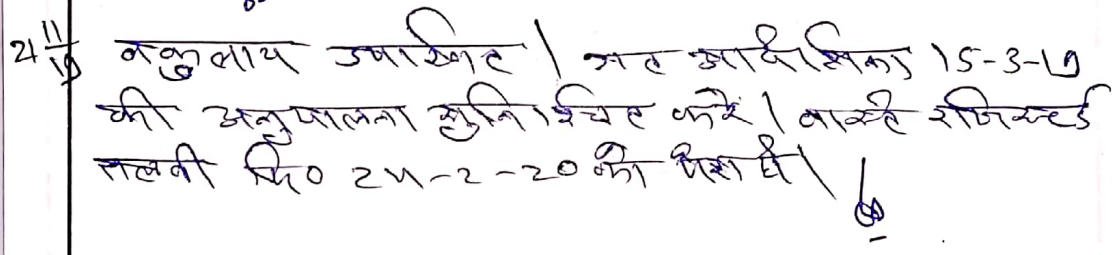 21/11/19 वकुलाय उपस्थित । गत आदेशिका 15-3-19
की अनुपालना सुनिश्चित करे । वास्ते रजिस्टर्ड
तलबी दि० 24-2-20 को पेश हो ।